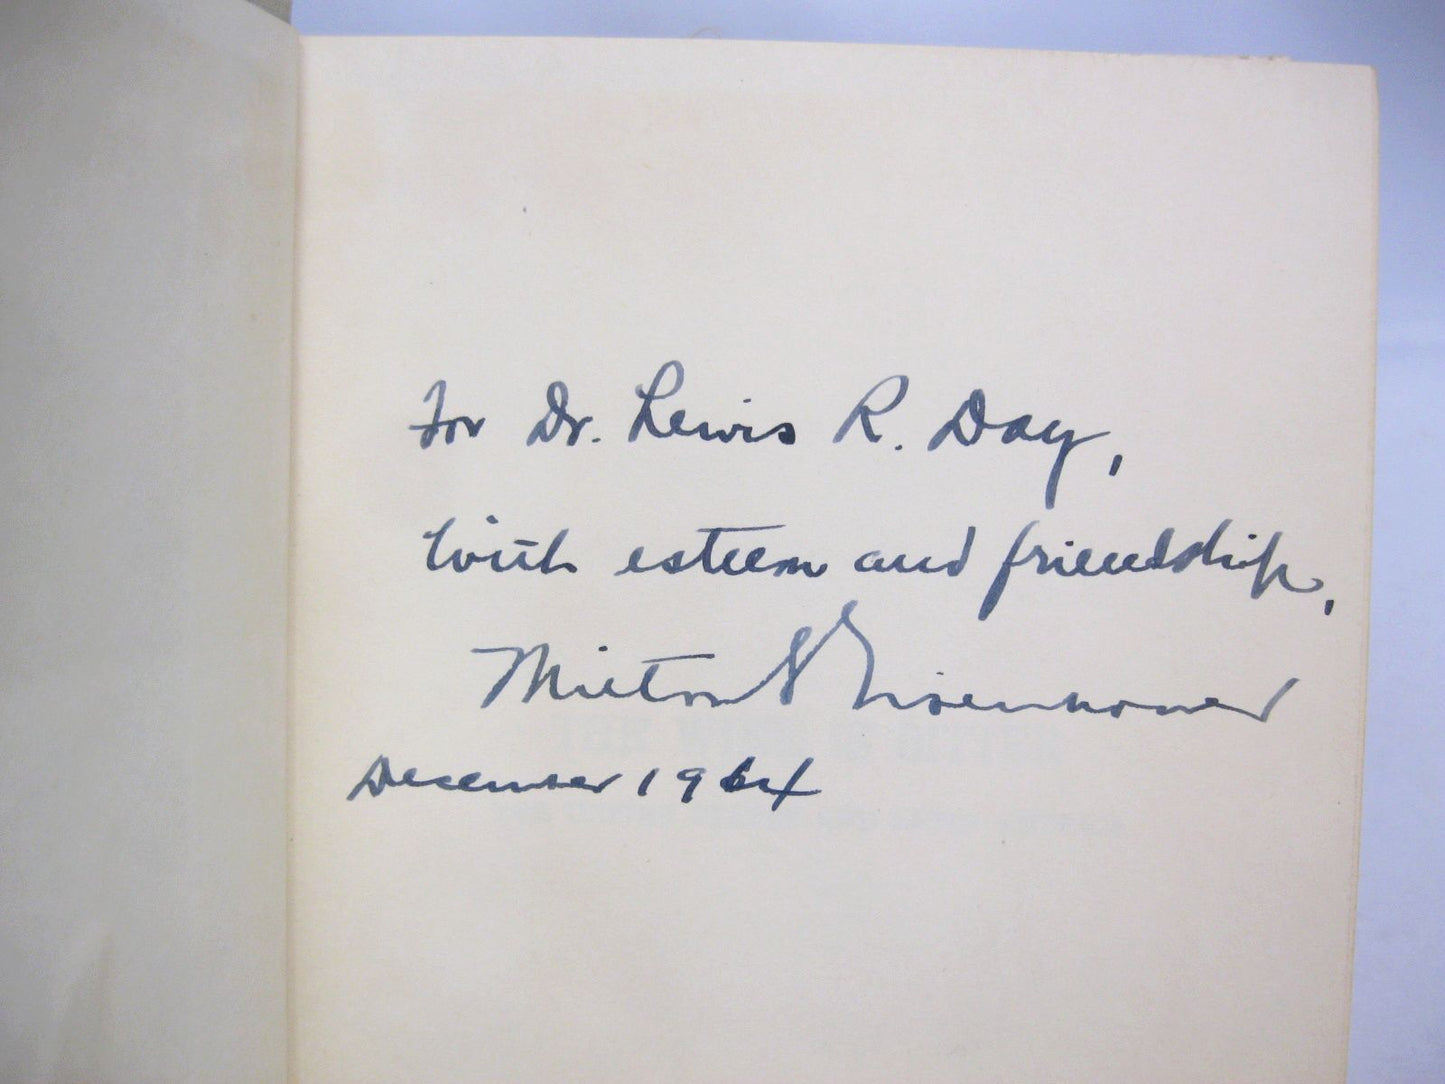 For Dr. Lewis R. Day,
with esteem and friendship,
Milton S Eisenhower
December 1964